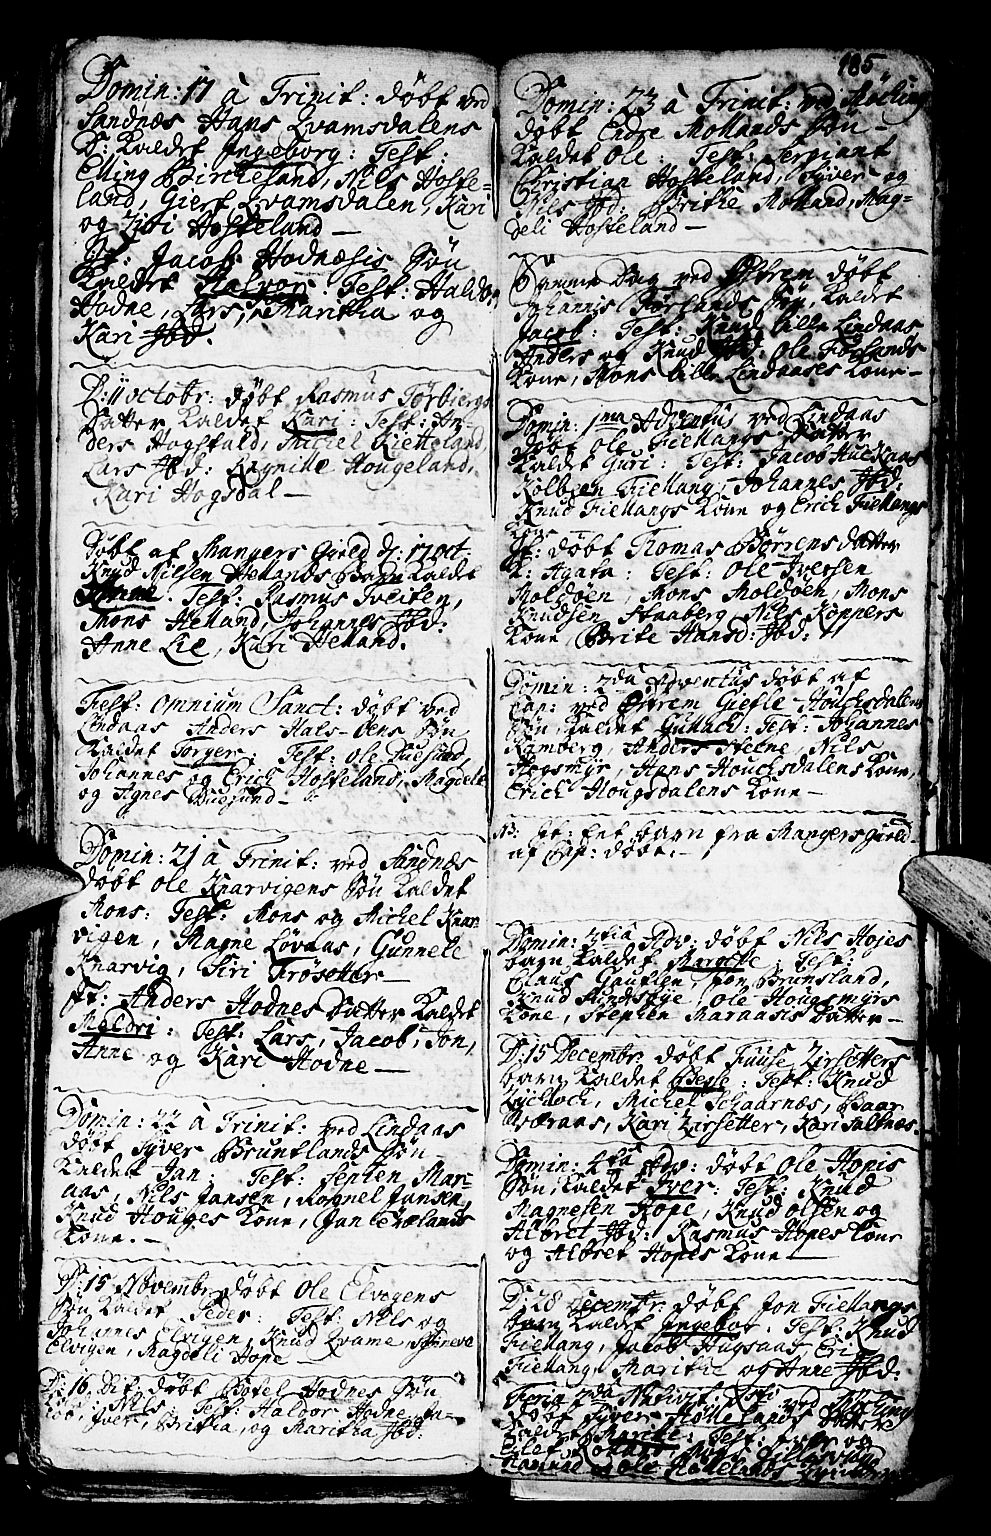 Domin: 17 à Trinit: døbt ved
Sandnæs Hans Qvamsdalens
B: Kaldet Ingeborg: Test:
Elling Birchesand, Nils Hoste-
land, Giert Qvamsdalen, Kari
og Ziri Hosteland —
It: Jacob Hodnesis Søn
Kaldet Halvor: Test: Haldor
Hodne, Lars, Maritha og
Kari ibd.
D: 11 octobr: døbt Rasmus Torbiergs
Datter Kaldet Kari: Test: An-
ders Hogstald, Michel Kietteland,
Lars ibd: Ragnille Hougeland,
Kari Hogsdal —
Døbt af Mangers Gield d: 17 oct:
Knud Nilsen Hellands Barn Kaldet
Test: Rasmus Tveiten,
Mons Helland, Johannes ibd:
Anne Lie, Kari Helland.
Fest: omnium Sanct: døbt ved
Lindaas Anders Hals-dens Søn
Kaldet Torger: Test: Ole Duesund,
Johannes og Erich Hosteland, Magdele
og Agnes Duesund —
Domin: 21 à Trinit: ved Sandnæs
døbt ole Knarvigens Søn Kaldet
Mons: Test: Mons og Michel Knar-
vigen, Magne Løvaas, Gunnele
Knarvig, Siri Trøsetter —
It: Anders Hodnes Datter Kaldet
Maldori: Test: Lars, Jacob, Jon,
Anne og Kari Hodne —
Domin: 22 à Trinit: ved Lindaas
døbt Syver Bruntlands Søn
Kaldet Jan. Test: Mar-
aas, Nils Jansen, Rognel Jansen,
Knud Houges Kone, Jan
Kone. —
D: 15 Novembr: døbt Ole Elvegens
Søn Kaldet Peder: Test: Nils og
Johannis Elvigen, Knud Qvame,
Elvigen, Magdeli Hope —
D: 16 Dit: døbt Botel Hodnes Søn
Kaldet Nils: Test: Haldor Hodne, Ja-
cob, Iver, Britha, og Maritha ibd:
185
Domin: 23 à Trinit: ved Møcling
døbt Endre Mollands Søn —
Kaldet Ole: Test: Sergiant
Christian Hosteland, Syver og
Nils ibd: Brithe Molland, Mag-
deli Hosteland —
Samme Dag ved Østrem døbt
Johannis Førlands Søn, Kaldet
Jacob: Test: Knud lille Lindaas
Anders og Knud ibd: ole Førlands
Kone, Mons lille Lindaases Kone —
Domin: 1ma Adventus ved Lindaas
døbt ole Fiellangs Datter
Kaldet Guri: Test: Jacob
Kolben Fiellang, Johannes ibd:
Knud Fiellangs Kone og Erich Fiellangs
Kone
It: døbt Thomas Børiens datter
K: Agata: Test: Ole Iversen
Moldøen, Mons Moldøen, Mons
Knudsen Nils Koppers
Kone Brite Hansd: ibd:
Domin: 2da Adventus døbt af
Cap: ved Østrem Gietle Houchsdalens
Søn, Kaldet Gullach: Test: Johannes
Ramberg, Anders Steene, Nils
Hegsmyr, Hans Houchsdalens Kone,
Erich Hougsdalens Kone —
NB: It: Eet barn fra Mangers gield
af Cap: døbt. —
Domin: 3tia Adv: døbt Nils Hojes
barn Kaldet Margete: Test:
Claus Jon Brunsland,
Knud ole Hougsmyrs
Kone, Stephen Maraasis Datter —
D: 15 Decembr: døbt Tuuse Zirsetters
barn Kaldet Berte: Test: Knud
Michel Schaarnæs, Baar
Kari Zirsetter, Kari Saltnæs.
Domin: 4ta Adv: døbt ole Hopis
Søn, Kaldet Iver: Test: Knud
Magnesen Hope, Knud Olsen og
Albret ibd: Rasmus Hopes Kone
og Albret Hopes Kone —
D: 28 Decembr: døbt Jon Fiellangs
barn Kaldet Ingebor Test: Knud
Fiellang, Jacob Hugsaas, Erich
Fiellang, Marithe og Anne ibd:
Feria 2da Nativit: Xsti ved Møcling
døbt Syver Datter
Kaldet Marite: Test: Iver og